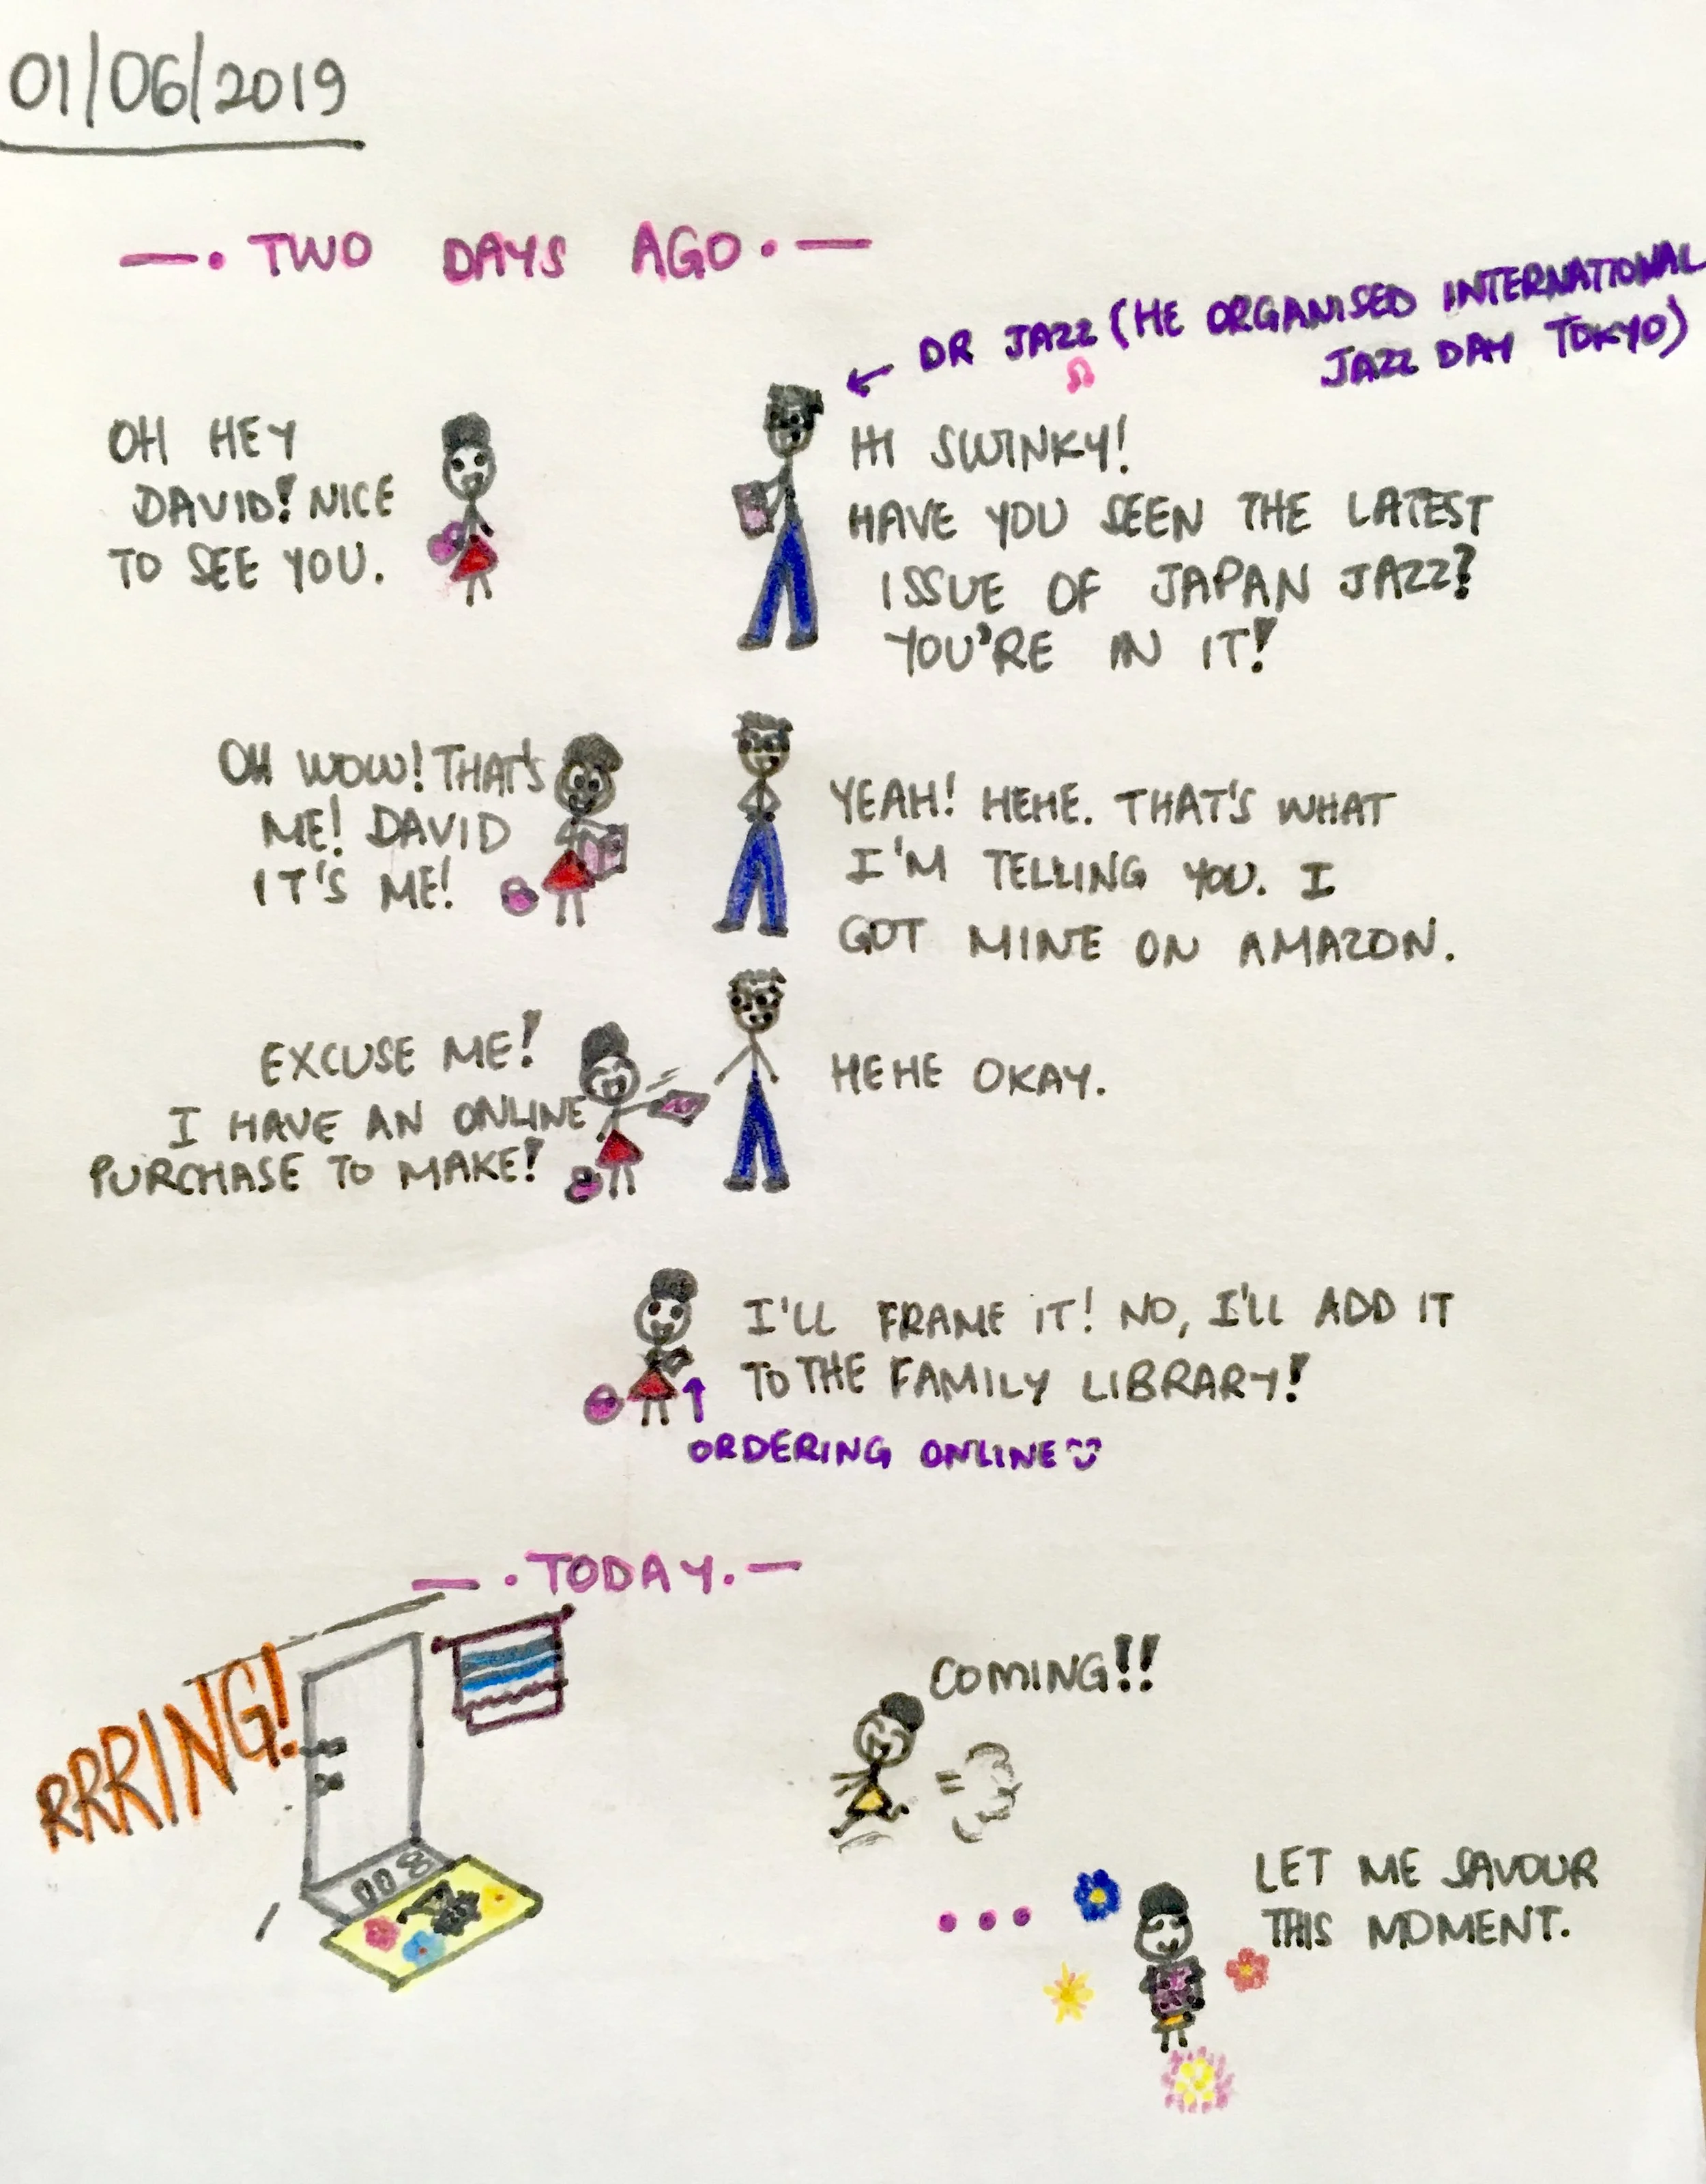 01/06/2019
—. TWO DAYS AGO. —
← DR JAZZ (HE ORGANISED INTERNATIONAL
JAZZ DAY TOKYO)
OH HEY
DAVID! NICE
TO SEE YOU.
HI SWINKY!
HAVE YOU SEEN THE LATEST
ISSUE OF JAPAN JAZZ?
YOU'RE IN IT!
OH WOW! THAT'S
ME! DAVID
IT'S ME!
YEAH! HEHE. THAT'S WHAT
I'M TELLING YOU. I
GOT MINE ON AMAZON.
EXCUSE ME!
I HAVE AN ONLINE
PURCHASE TO MAKE!
HEHE OKAY.
I'LL FRAME IT! NO, I'LL ADD IT
TO THE FAMILY LIBRARY!
ORDERING ONLINE
— . TODAY. —
RRRING!
COMING!!
...
LET ME SAVOUR
THIS MOMENT.